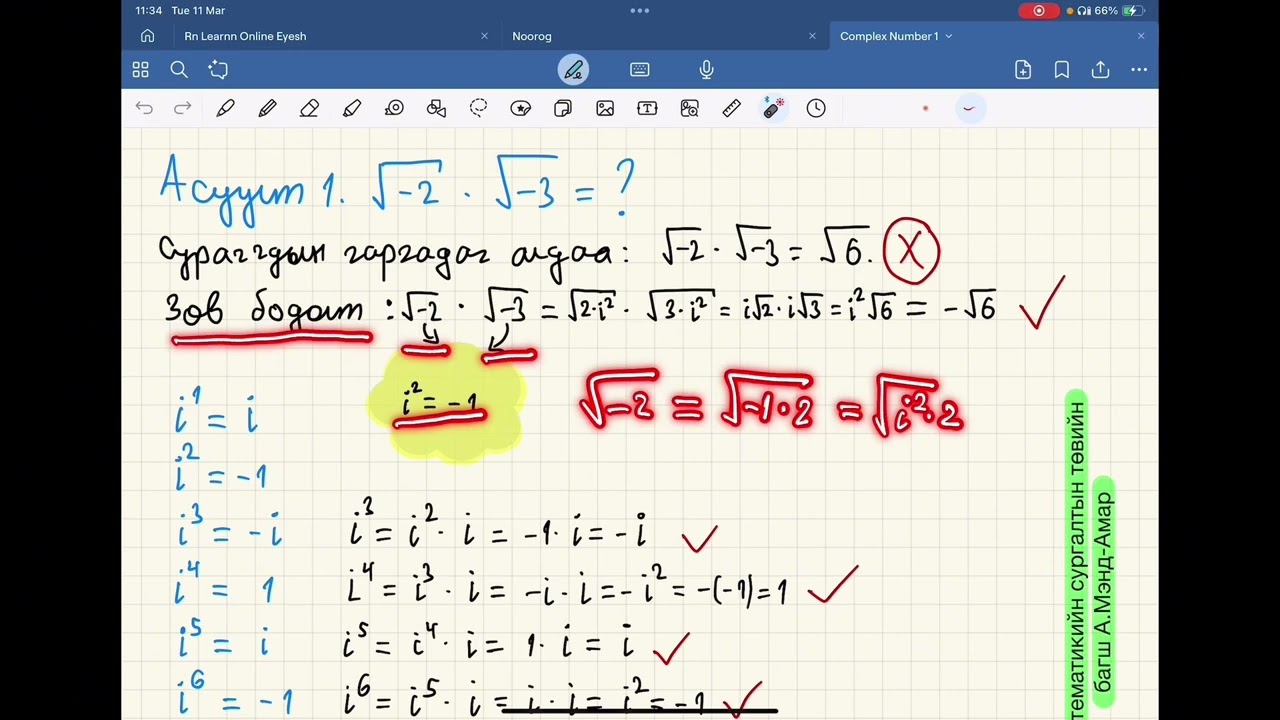 11:34 Tue 11 Mar 66%
Rn Learnn Online Eyesh Noorog Complex Number 1
Асуулт 1. √-2 · √-3 = ?
Сурагчдын гаргадаг алдаа: √-2 · √-3 = √6. X
Зөв бодолт: √-2 · √-3 = √2·i² · √3·i² = i√2 · i√3 = i²√6 = -√6 ✓
i² = -1
√-2 = √-1·2 = √i²·2
i¹ = i
i² = -1
i³ = -i i³ = i² · i = -1 · i = -i ✓
i⁴ = 1 i⁴ = i³ · i = -i · i = -i² = -(-1) = 1 ✓
i⁵ = i i⁵ = i⁴ · i = 1 · i = i ✓
i⁶ = -1 i⁶ = i⁵ · i = i · i = i² = -1 ✓
тематикийн сургалтын төвийн
багш А.Мэнд-Амар